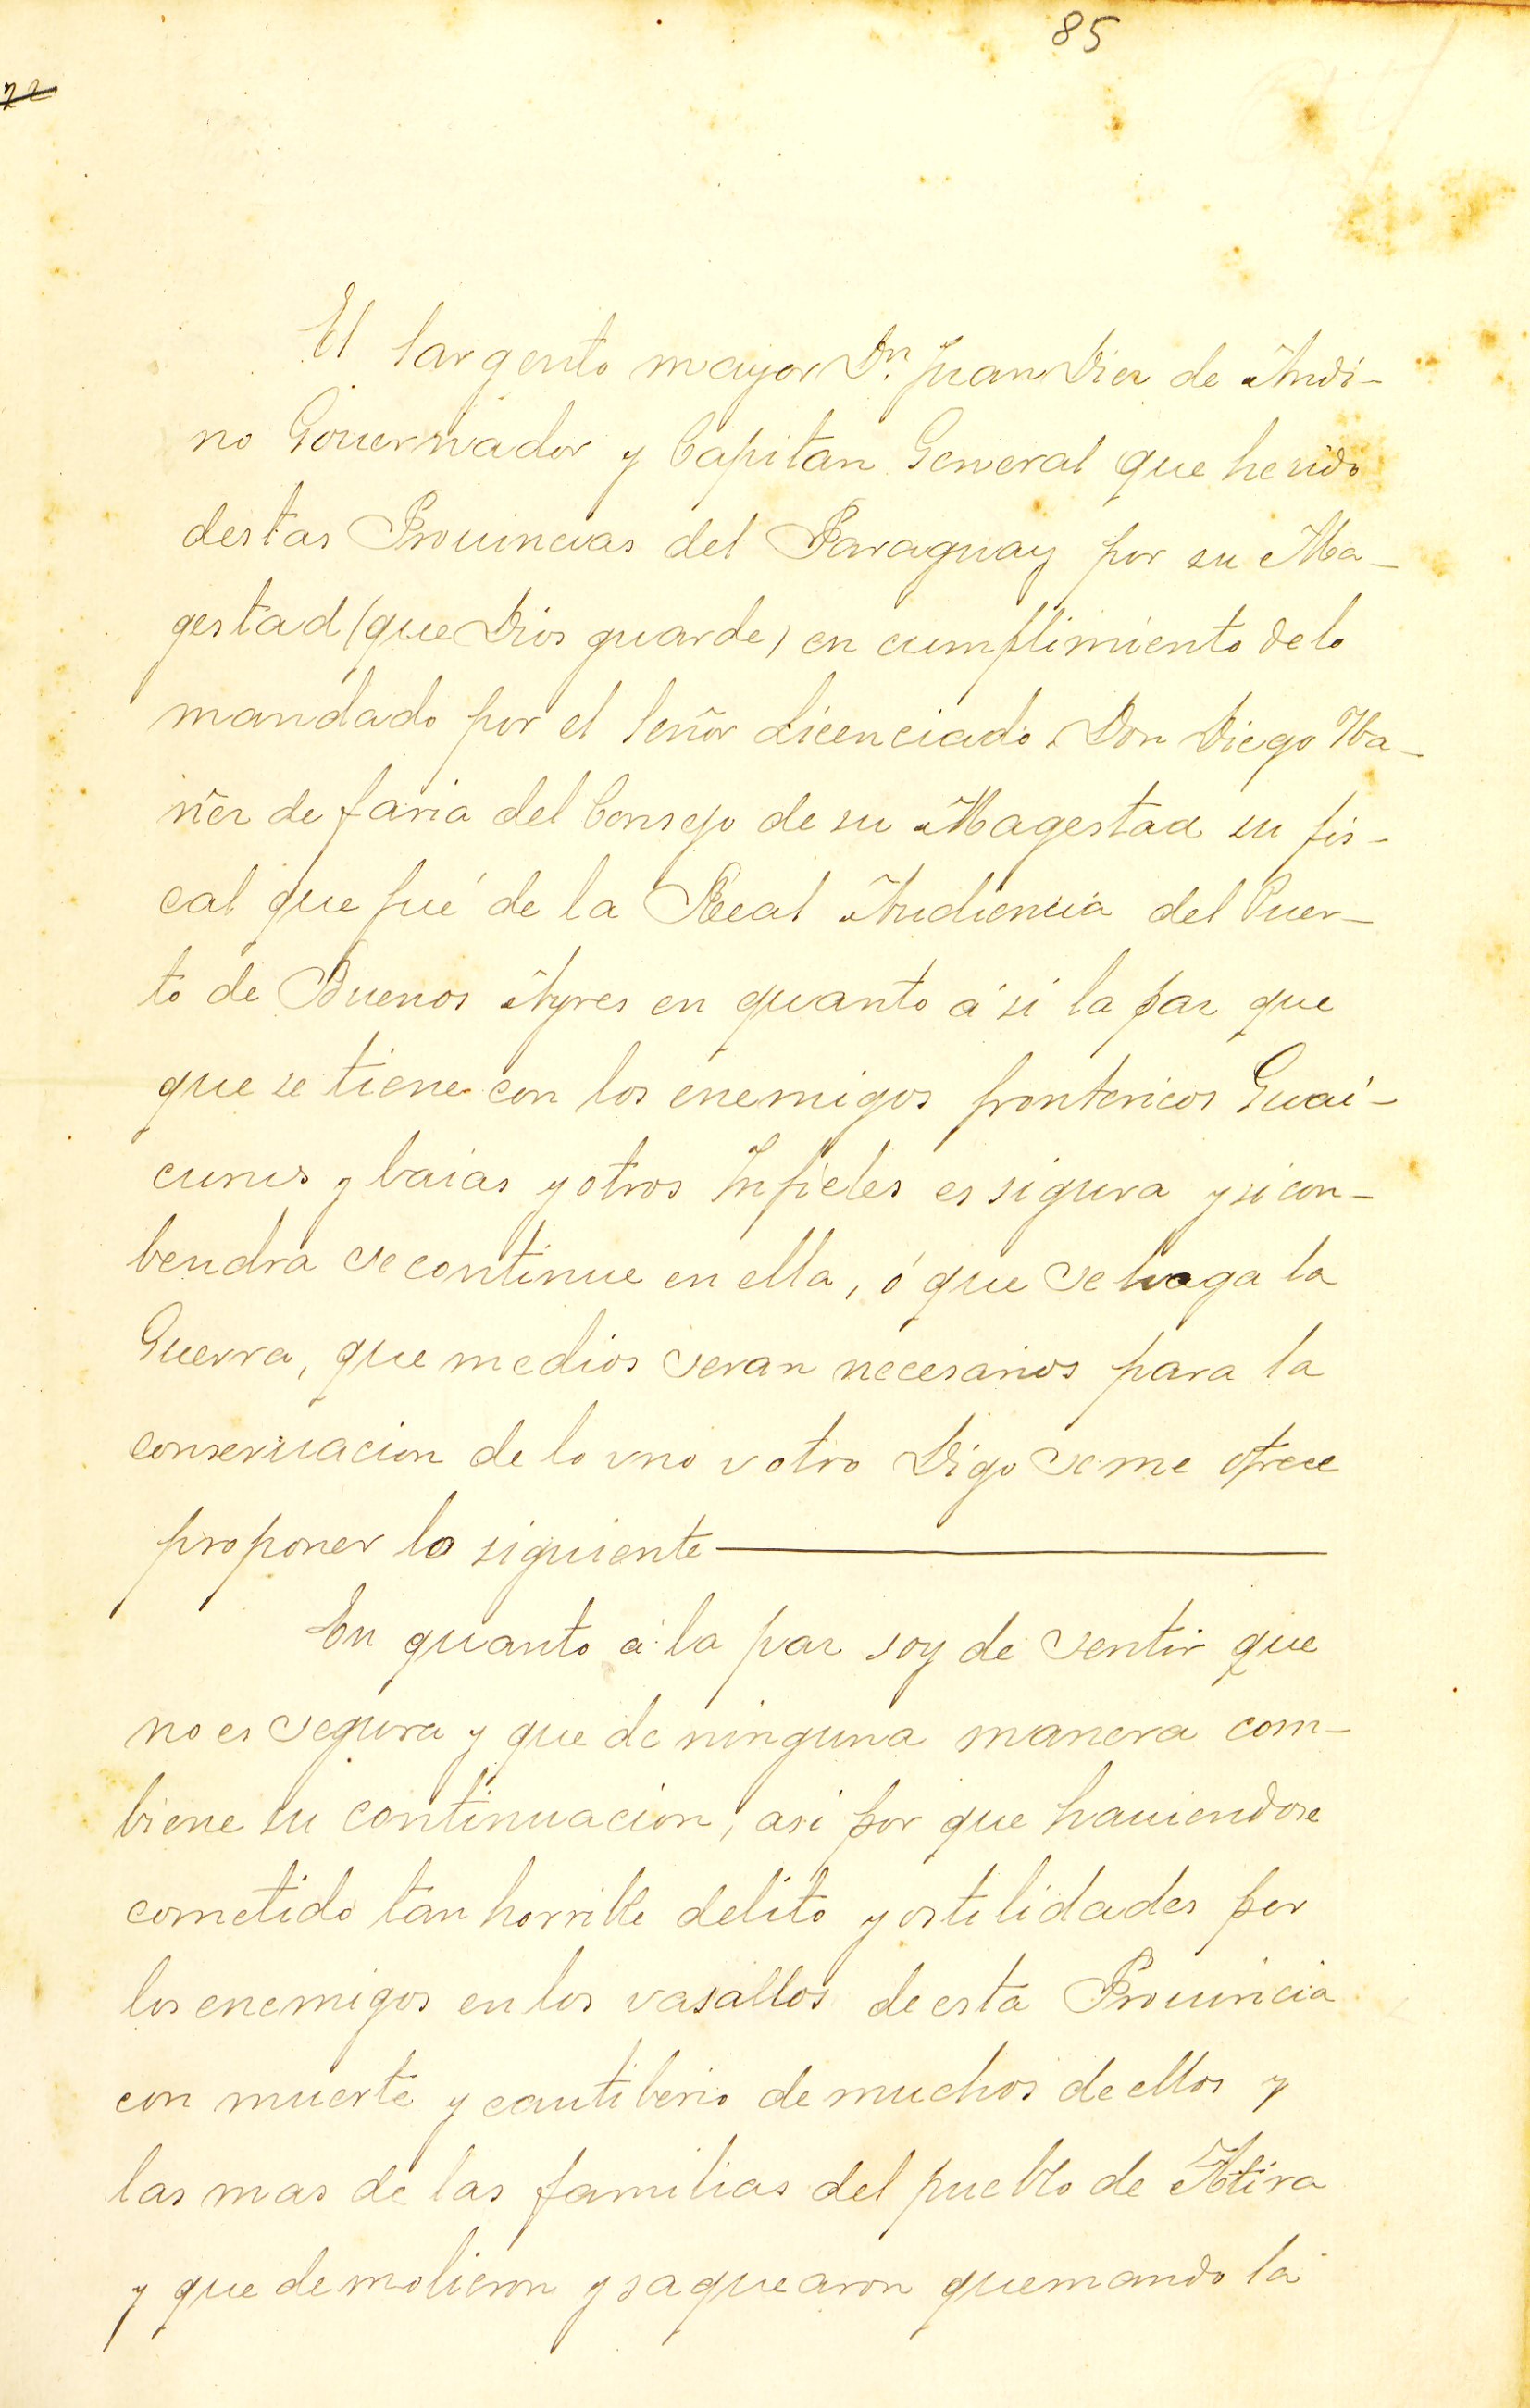 85
72
El Sargento mayor Dn. Juan Diez de Andi-
no Gouernador y Capitan General que he sido
destas Prouincias del Paraguay por su Ma-
gestad (que Dios guarde) en cumplimiento de lo
mandado por el Señor Licenciado Don Diego Yba-
ñez de faria del Consejo de su Magestad su fis-
cal que fué de la Real Audiencia del Puer-
to de Buenos Ayres en quanto á si la paz que
que se tiene con los enemigos fronterizos Guai-
curus y baias y otros Infieles es sigura y si con-
bendra se continue en ella, ó que se haga la
Guerra, que medios seran necesarios para la
conseruacion de lo vno v otro Digo se me ofrece
proponer lo siguiente
En quanto á la paz soy de sentir que
no es segura y que de ninguna manera com-
biene su continuacion, asi por que hauiendose
cometido tan horrible delito y ostilidades por
los enemigos en los vasallos de esta Prouincia
con muerte y cautiberio de muchos de ellos y
las mas de las familias del pueblo de Atira
y que demolieron y saquearon quemando la